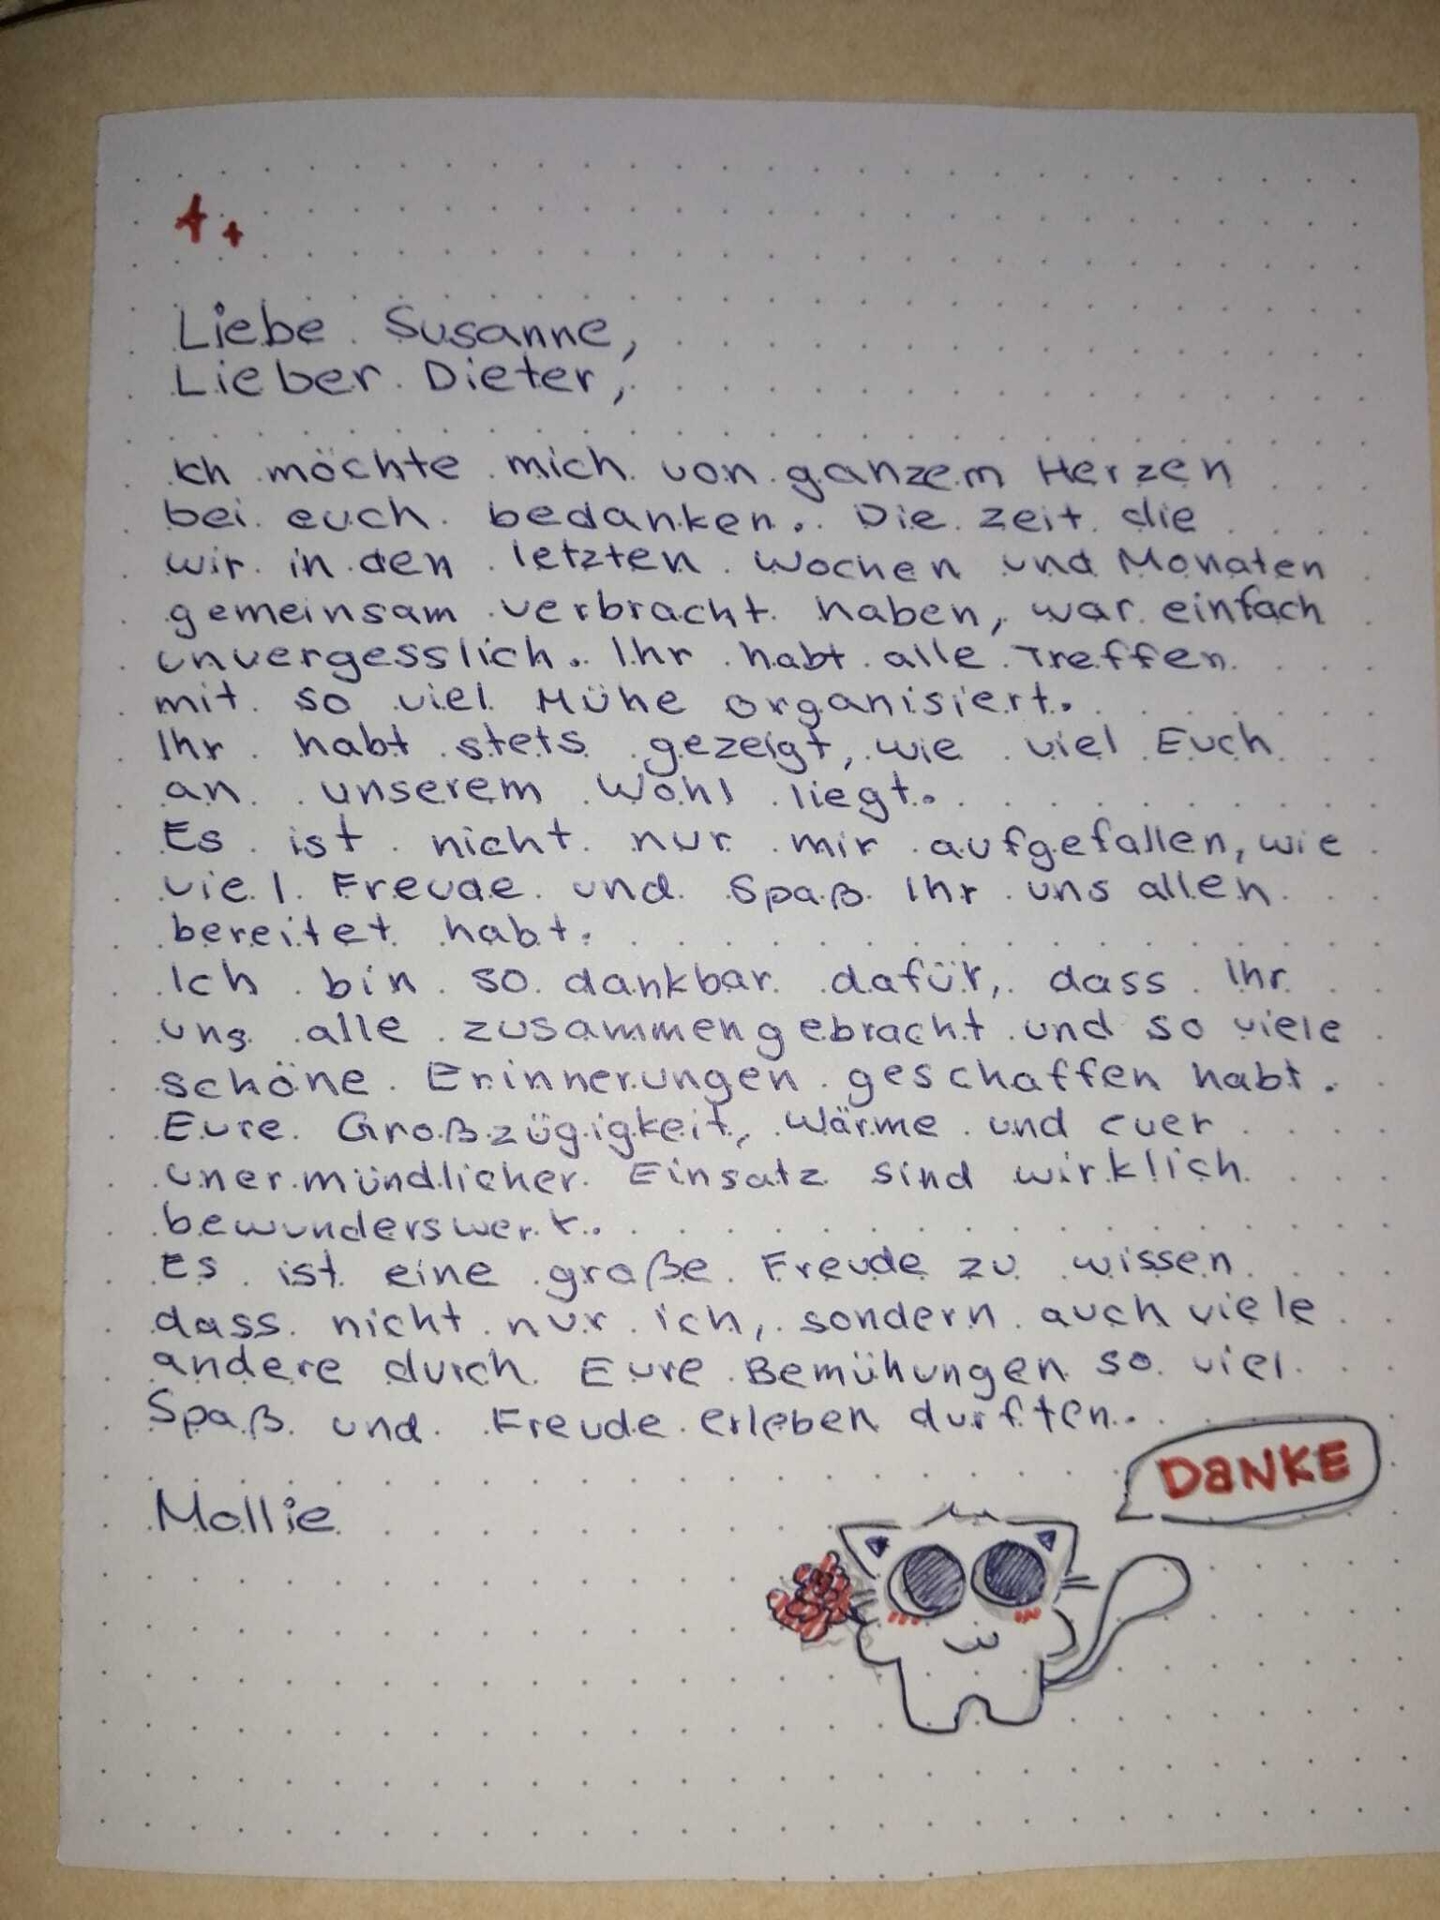 1+
Liebe Susanne,
Lieber Dieter,
Ich möchte mich von ganzem Herzen
bei euch bedanken. Die Zeit die
wir in den letzten Wochen und Monaten
gemeinsam verbracht haben, war einfach
unvergesslich. Ihr habt alle Treffen
mit so viel Mühe organisiert.
Ihr habt stets gezeigt, wie viel Euch
an unserem Wohl liegt.
Es ist nicht nur mir aufgefallen, wie
viel Freude und Spaß Ihr uns allen
bereitet habt.
Ich bin so dankbar dafür, dass Ihr
uns alle zusammengebracht und so viele
schöne Erinnerungen geschaffen habt.
Eure Großzügigkeit, Wärme und euer
unermündlicher Einsatz sind wirklich
bewunderswert.
Es ist eine große Freude zu wissen
dass nicht nur ich, sondern auch viele
andere durch Eure Bemühungen so viel
Spaß und Freude erleben durften.
DANKE
Mollie